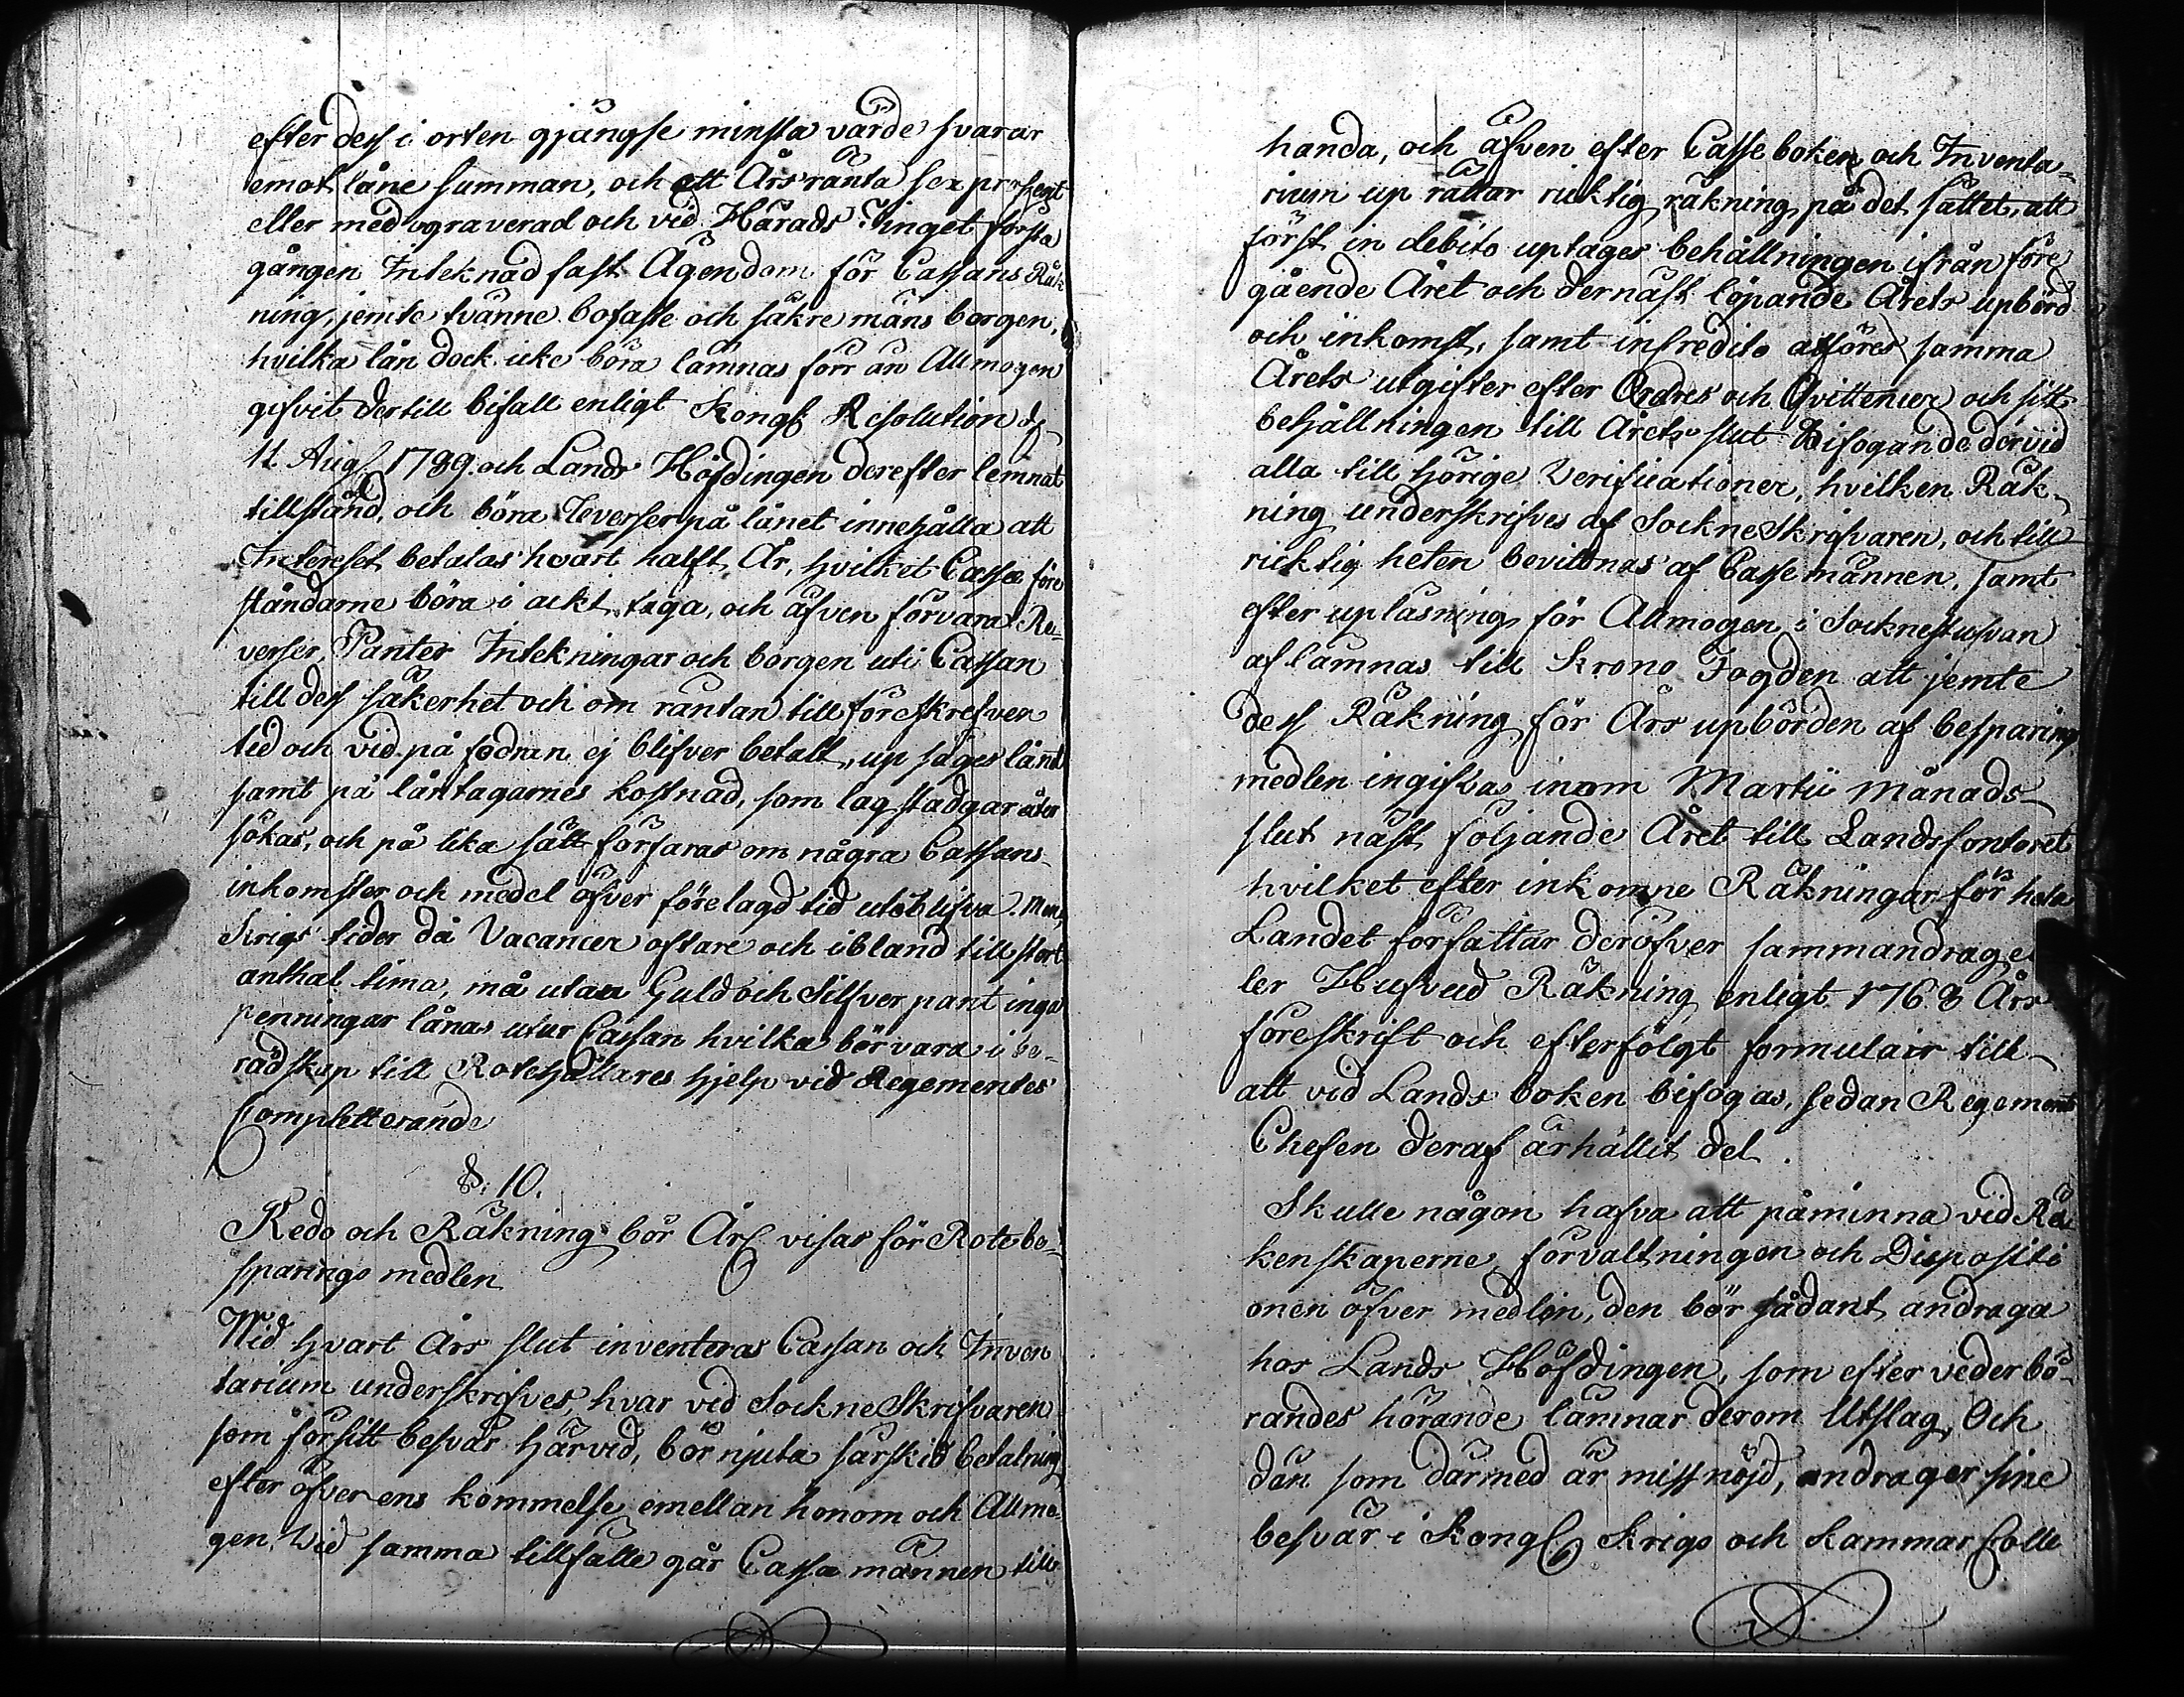 efter dess i orten gjängse minsta värde svarar
emot låne summan, och ett Års ränta sex prosent
eller med ograverad och vid Härads Tinget första
gången Inteknad fast Ägendom för Cassans Räk
ning, jemte tvänne bofaste och säkre mäns borgen,
hvilka lån dock icke böra lämnas förr än Allmogen
gifvit dertill bifall enligt Kongl Resolution d
11. Aug 1789. och Lands Höfdingen derefter lemnat
tillstånd, och böra Reverser på lånet innehålla att
Intereset betalas hvart halft År, hvilket Casse före
ståndarne böra i ackt taga, och äfven förvara Re-
verser, Panter Intekningar och borgen uti Cassan
till dess säkerhet och om räntan till föreskrefven
tid och vid på fodran ej blifver betalt, up säges lånet
samt på låntagarnes kostnad, som lag stadgar åter
sökas, och på lika sätt förfaras om några Cassans
inkomster och medel öfver förelagd tid uteblifva. Men,
Krigs tider då Vacancer oftare och ibland till stort
anthal tima, må utan Guld och Silfver pant inga
penningar lånas utur Cassan hvilka bör vara i be-
rädskap till Rotehållares hjelp vid Regementes
Completterande
§. 10.
Redo och Räkning bör Årl visas för Rote be-
sparings medlen
Wid hvart Års slut inventeras Cassan och Inven
tarium underskrifves, hvar vid SockneSkrifvaren
som för sitt besvär härvid, bör njuta särskild betalning
efter öfver ens kommelse emellan honom och Allmo-
gen. Wid samma tillfälle går Cassa männen till
handa, och äfven efter Casse boken och Inventa-
rium up rättar ricktig räkning på det sättet, att
först in debito uptages behållningen ifrån före
gående Året och dernäst löpande Årets upbörd
och inkomst, samt in credito afföres samma
Årets utgifter efter Ordres och Qvittencer och sist
behållningen till Årets slut bifogande dervid
alla till hörige Verificationer, hvilken Räk-
ning underskrifves af SockneSkrifvaren, och till
ricktig heten bevittnas af Casse männen, samt
efter upläsning för Allmogen i Socknestufvan
aflämnas till Krono Fogden att jemte
dess Räkning för Års upbörden af besparings
medlen ingifvas inom Martii Månads
slut näst följande Året till Landscontoret
hvilket efter inkomne Räkningar för hela
Landet författar deröfver sammandrag el
ler Hufvud Räkning enligt 1768 Års
föreskrift och efterfölgt formulair till
att vid Lands boken bifogas, sedan Regements
Chefen deraf ärhållit del.
Skulle någon hafva att påminna vid Rä
kenskaperne, förvaltningen och Dispositi
onen öfver medlen, den bör sådant andraga
hos Lands Höfdingen, som efter vederbö-
randes hörande lämnar derom Utslag, Och
dän som därmed är missnöjd, andrager sine
besvär i Kongl Krigs och Kammar Colle